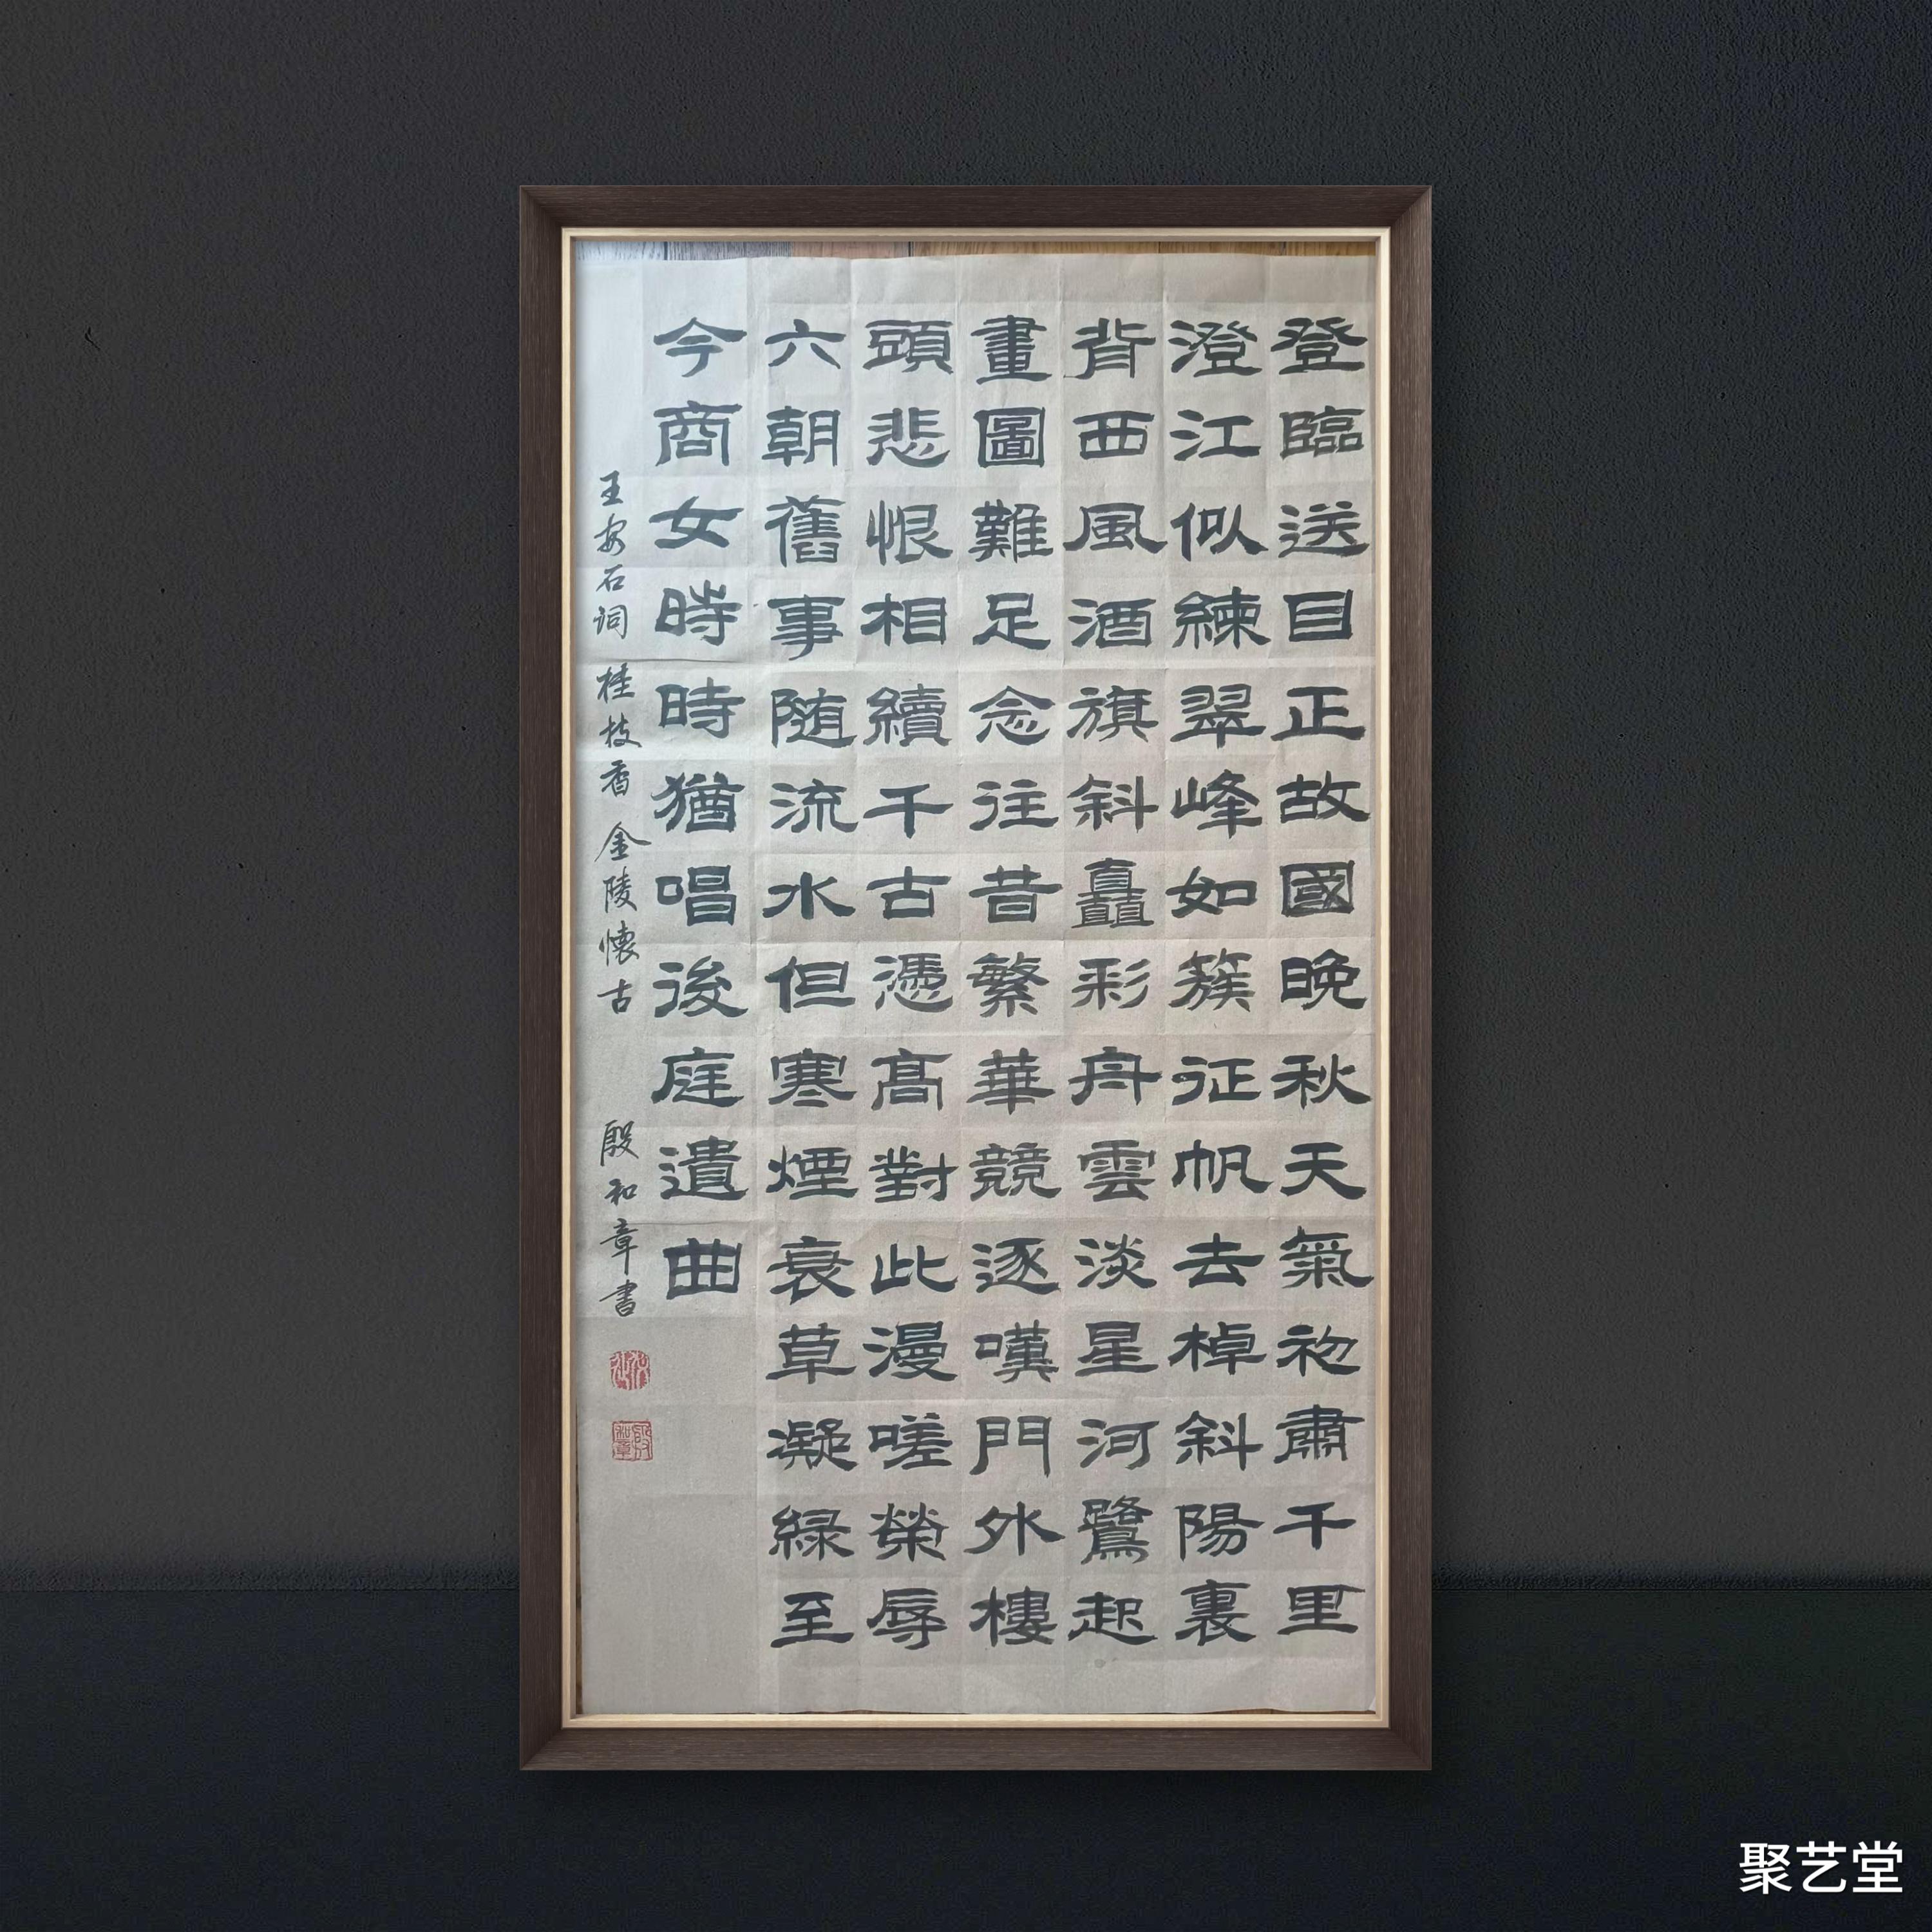 登臨送目正故國晚秋天氣初肅千里
澄江似練翠峰如簇征帆去棹斜陽裏
背西風酒旗斜矗彩舟雲淡星河鷺起
畫圖難足念往昔繁華競逐嘆門外樓
頭悲恨相續千古憑髙對此漫嗟榮辱
六朝舊事随流水但寒煙衰草凝緑至
今商女時時猶唱後庭遺曲
王安石词 桂枝香 金陵懷古 殷和章書
殷和章
聚艺堂